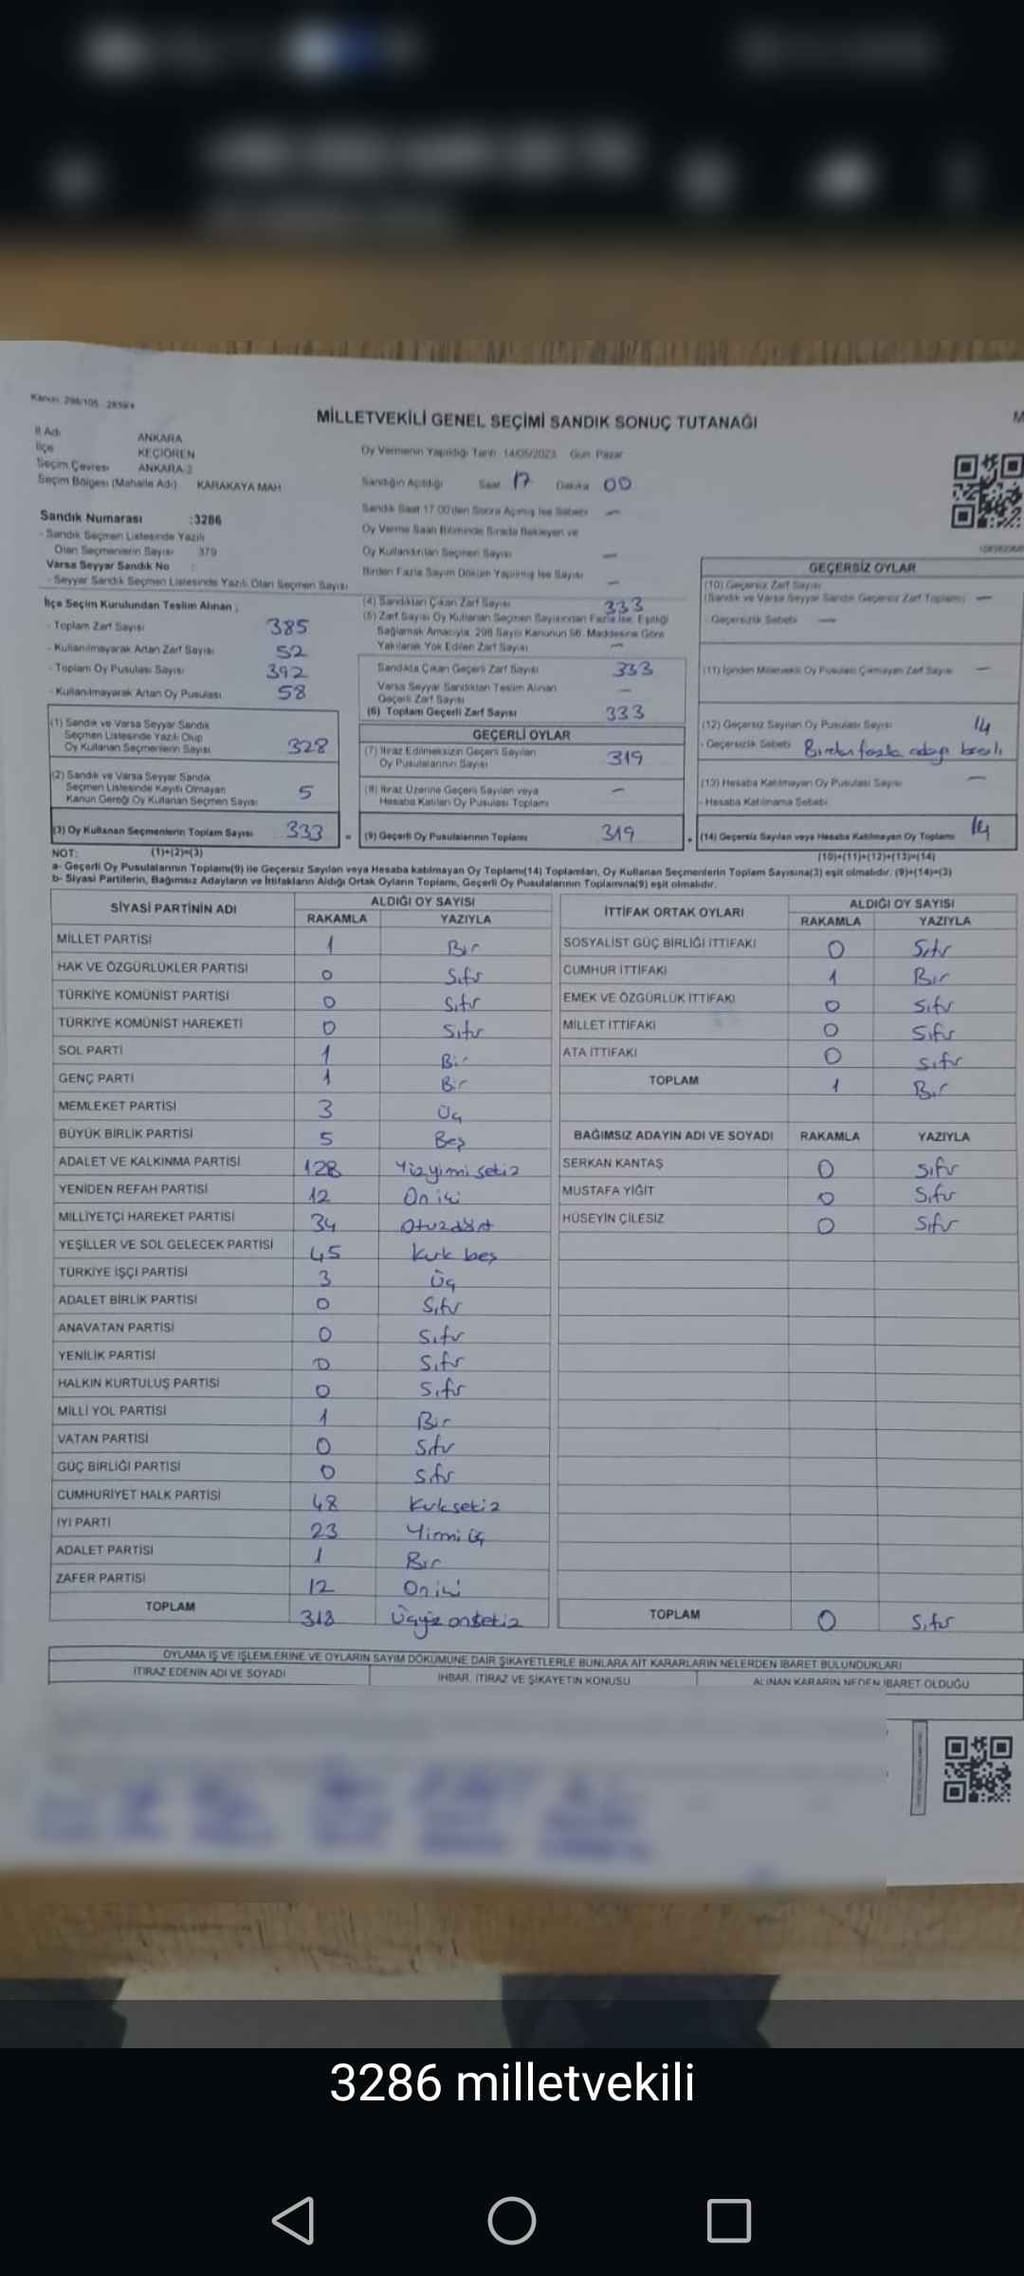 Kanun: 298/105
MİLLETVEKİLİ GENEL SEÇİMİ SANDIK SONUÇ TUTANAĞI
İl Adı ANKARA
İlçe KEÇİÖREN
Seçim Çevresi ANKARA
Seçim Bölgesi (Mahalle Adı) KARAKAYA MAH
Oy Vermenin Yapıldığı Tarih 14/05/2023 Gün Pazar
Sandığın Açıldığı Saat 17 Dakika 00
Sandık Numarası :3286
- Sandık Seçmen Listesinde Yazılı
Olan Seçmenlerin Sayısı 379
Varsa Seyyar Sandık No
- Seyyar Sandık Seçmen Listesinde Yazılı Olan Seçmen Sayısı
Sandık Saat 17.00'den Sonra Açılmış İse Sebebi —
Oy Verme Saati Bitiminde Sırada Bekleyen ve
Oy Kullandırılan Seçmen Sayısı —
Birden Fazla Sayım Döküm Yapılmış İse Sayısı —
İlçe Seçim Kurulundan Teslim Alınan ;
- Toplam Zarf Sayısı 385
- Kullanılmayarak Artan Zarf Sayısı 52
- Toplam Oy Pusulası Sayısı 392
- Kullanılmayarak Artan Oy Pusulası 58
(1) Sandık ve Varsa Seyyar Sandık
Seçmen Listesinde Yazılı Olup
Oy Kullanan Seçmenlerin Sayısı 328
(2) Sandık ve Varsa Seyyar Sandık
Seçmen Listesinde Kayıtlı Olmayan
Kanun Gereği Oy Kullanan Seçmen Sayısı 5
(3) Oy Kullanan Seçmenlerin Toplam Sayısı 333 =
(4) Sandıktan Çıkan Zarf Sayısı 333
(5) Zarf Sayısı Oy Kullanan Seçmen Sayısından Fazla İse, Eşitliği
Sağlamak Amacıyla, 298 Sayılı Kanunun 98. Maddesine Göre
Yakılarak Yok Edilen Zarf Sayısı —
Sandıkta Çıkan Geçerli Zarf Sayısı 333
Varsa Seyyar Sandıktan Teslim Alınan
Geçerli Zarf Sayısı —
(6) Toplam Geçerli Zarf Sayısı 333
GEÇERLİ OYLAR
(7) İtiraz Edilmeksizin Geçerli Sayılan
Oy Pusulalarının Sayısı 319
(8) İtiraz Üzerine Geçerli Sayılan veya
Hesaba Katılan Oy Pusulası Toplamı —
(9) Geçerli Oy Pusulalarının Toplamı 319
GEÇERSİZ OYLAR
(10) Geçersiz Zarf Sayısı
(Sandık ve Varsa Seyyar Sandık Geçersiz Zarf Toplamı) —
- Geçersizlik Sebebi —
(11) İçinden Milletvekili Oy Pusulası Çıkmayan Zarf Sayısı —
(12) Geçersiz Sayılan Oy Pusulası Sayısı 14
- Geçersizlik Sebebi Birden fazla adaya basılı
(13) Hesaba Katılmayan Oy Pusulası Sayısı —
- Hesaba Katılmama Sebebi
(14) Geçersiz Sayılan veya Hesaba Katılmayan Oy Toplamı 14
NOT: (1)+(2)=(3) (10)+(11)+(12)+(13)=(14)
a- Geçerli Oy Pusulalarının Toplamı(9) ile Geçersiz Sayılan veya Hesaba katılmayan Oy Toplamı(14) Toplamları, Oy Kullanan Seçmenlerin Toplam Sayısına(3) eşit olmalıdır. (9)+(14)=(3)
b- Siyasi Partilerin, Bağımsız Adayların ve İttifakların Aldığı Ortak Oyların Toplamı, Geçerli Oy Pusulalarının Toplamına(9) eşit olmalıdır.
SİYASİ PARTİNİN ADI ALDIĞI OY SAYISI
RAKAMLA YAZIYLA
MİLLET PARTİSİ 1 Bir
HAK VE ÖZGÜRLÜKLER PARTİSİ 0 Sıfır
TÜRKİYE KOMÜNİST PARTİSİ 0 Sıfır
TÜRKİYE KOMÜNİST HAREKETİ 0 Sıfır
SOL PARTİ 1 Bir
GENÇ PARTİ 1 Bir
MEMLEKET PARTİSİ 3 Üç
BÜYÜK BİRLİK PARTİSİ 5 Beş
ADALET VE KALKINMA PARTİSİ 128 Yüzyimi sekiz
YENİDEN REFAH PARTİSİ 12 On iki
MİLLİYETÇİ HAREKET PARTİSİ 34 Otuzdört
YEŞİLLER VE SOL GELECEK PARTİSİ 45 Kırk beş
TÜRKİYE İŞÇİ PARTİSİ 3 Üç
ADALET BİRLİK PARTİSİ 0 Sıfır
ANAVATAN PARTİSİ 0 Sıfır
YENİLİK PARTİSİ 0 Sıfır
HALKIN KURTULUŞ PARTİSİ 0 Sıfır
MİLLİ YOL PARTİSİ 1 Bir
VATAN PARTİSİ 0 Sıfır
GÜÇ BİRLİĞİ PARTİSİ 0 Sıfır
CUMHURİYET HALK PARTİSİ 48 Kırksekiz
İYİ PARTİ 23 Yirmi üç
ADALET PARTİSİ 1 Bir
ZAFER PARTİSİ 12 On iki
TOPLAM 318 Üçyüz onsekiz
İTTİFAK ORTAK OYLARI ALDIĞI OY SAYISI
RAKAMLA YAZIYLA
SOSYALİST GÜÇ BİRLİĞİ İTTİFAKI 0 Sıfır
CUMHUR İTTİFAKI 1 Bir
EMEK VE ÖZGÜRLÜK İTTİFAKI 0 Sıfır
MİLLET İTTİFAKI 0 Sıfır
ATA İTTİFAKI 0 Sıfır
TOPLAM 1 Bir
BAĞIMSIZ ADAYIN ADI VE SOYADI RAKAMLA YAZIYLA
SERKAN KANTAŞ 0 Sıfır
MUSTAFA YİĞİT 0 Sıfır
HÜSEYİN ÇİLESİZ 0 Sıfır
TOPLAM 0 Sıfır
OYLAMA İŞ VE İŞLEMLERİNE VE OYLARIN SAYIM DÖKÜMÜNE DAİR ŞİKAYETLERLE BUNLARA AİT KARARLARIN NELERDEN İBARET BULUNDUKLARI
İTİRAZ EDENİN ADI VE SOYADI İHBAR, İTİRAZ VE ŞİKAYETİN KONUSU ALINAN KARARIN NEDEN İBARET OLDUĞU
3286 milletvekili